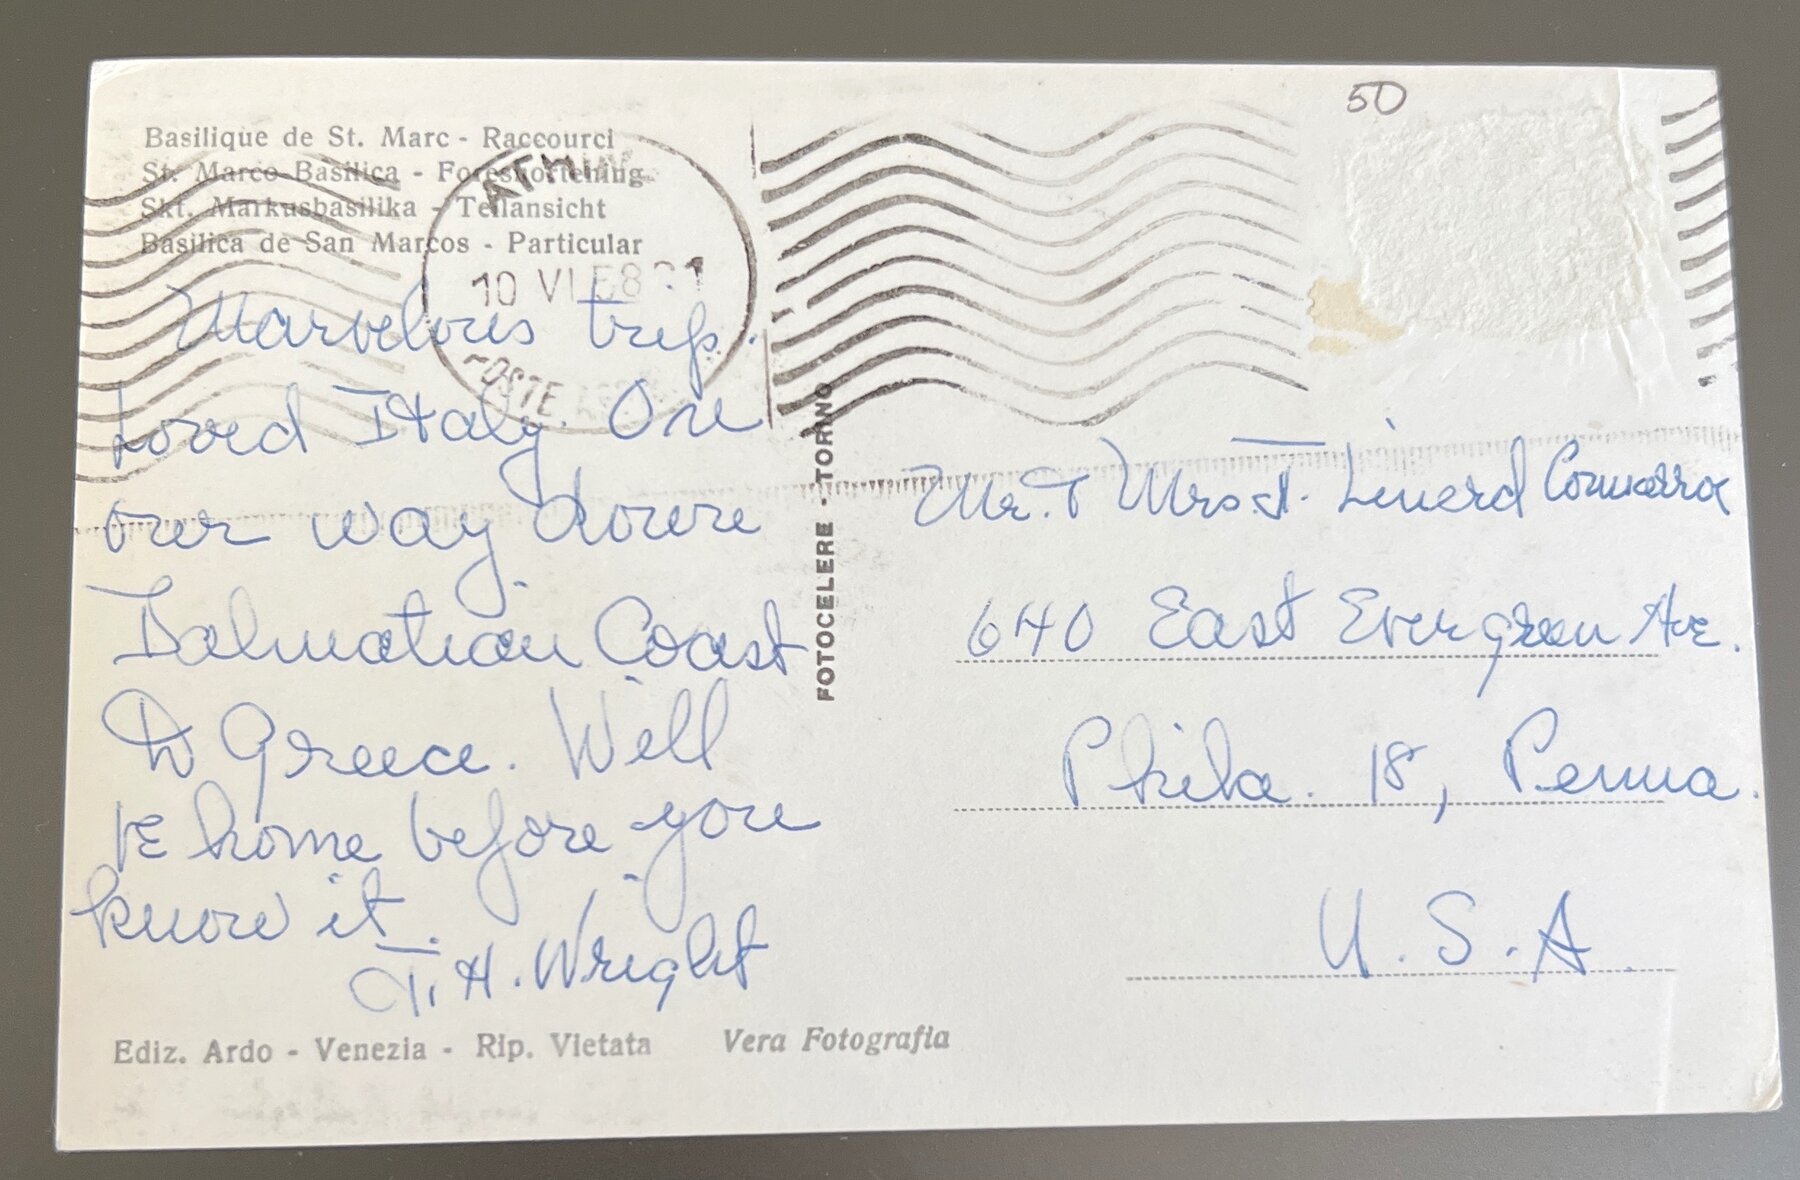 Basilique de St. Marc - Raccourci
St. Marco-Basilica - Foreshortening
Skt. Markusbasilika - Teilansicht
Basilica de San Marcos - Particular
10 VI 58
POSTE
50
Marvelous trip.
Loved Italy. On
our way down
Dalmatian Coast
to Greece. Will
be home before you
know it.
T. H. Wright
FOTOCELERE - TORINO
Mr. & Mrs. Linerd
640 East Evergreen Ave.
Phila. 18, Penna.
U. S. A.
Ediz. Ardo - Venezia - Rip. Vietata Vera Fotografia